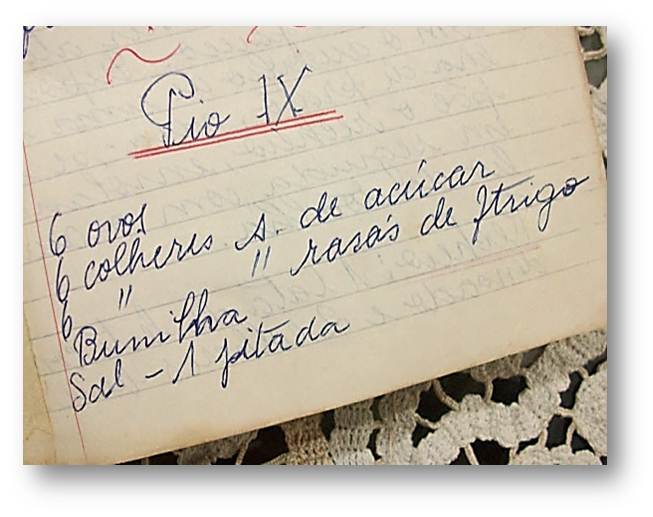 Pio IX
6 ovos
6 colheres s. de açúcar
6 " " rasas de f trigo
Bunilha
Sal - 1 pitada